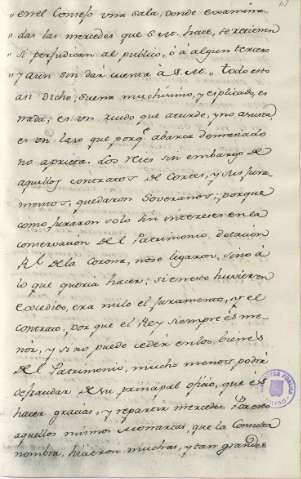 en el Consejo una sala, donde examina
" das las mercedes que S.M. hace, se retienen
" si perjudican al publico, ò á algun tercero
" y aun sin dar cuenta a S.M." todo esto
asi dicho, suena muchisimo, y esplicado, es
nada; es un ruido que aturde, y no asusta
es un lazo que porq.e abarca demasiado
no aprieta. Los Reies sin embargo de
aquellos contratos de Cortes, y sus jura
mentos, quedaron Soberanos; porque
como juraron solo sin interes en la
conservacion del Patrimonio dotacion
R.l de la Corona, no se ligaron, sino á
lo que queria hacer; si en esto huvieren
excedido, era nulo el juramento, y el
contrato, por que el Rey siempre es me
nor, y si no puede ceder en los bienes
del Patrimonio, mucho menos podrá
defraudar de su principal oficio, que es
hacer gracias, y repartir mercedes. Por esto
aquellos mismos Monarcas, que la Consulta
nombra, hicieron muchas, y tan grandes